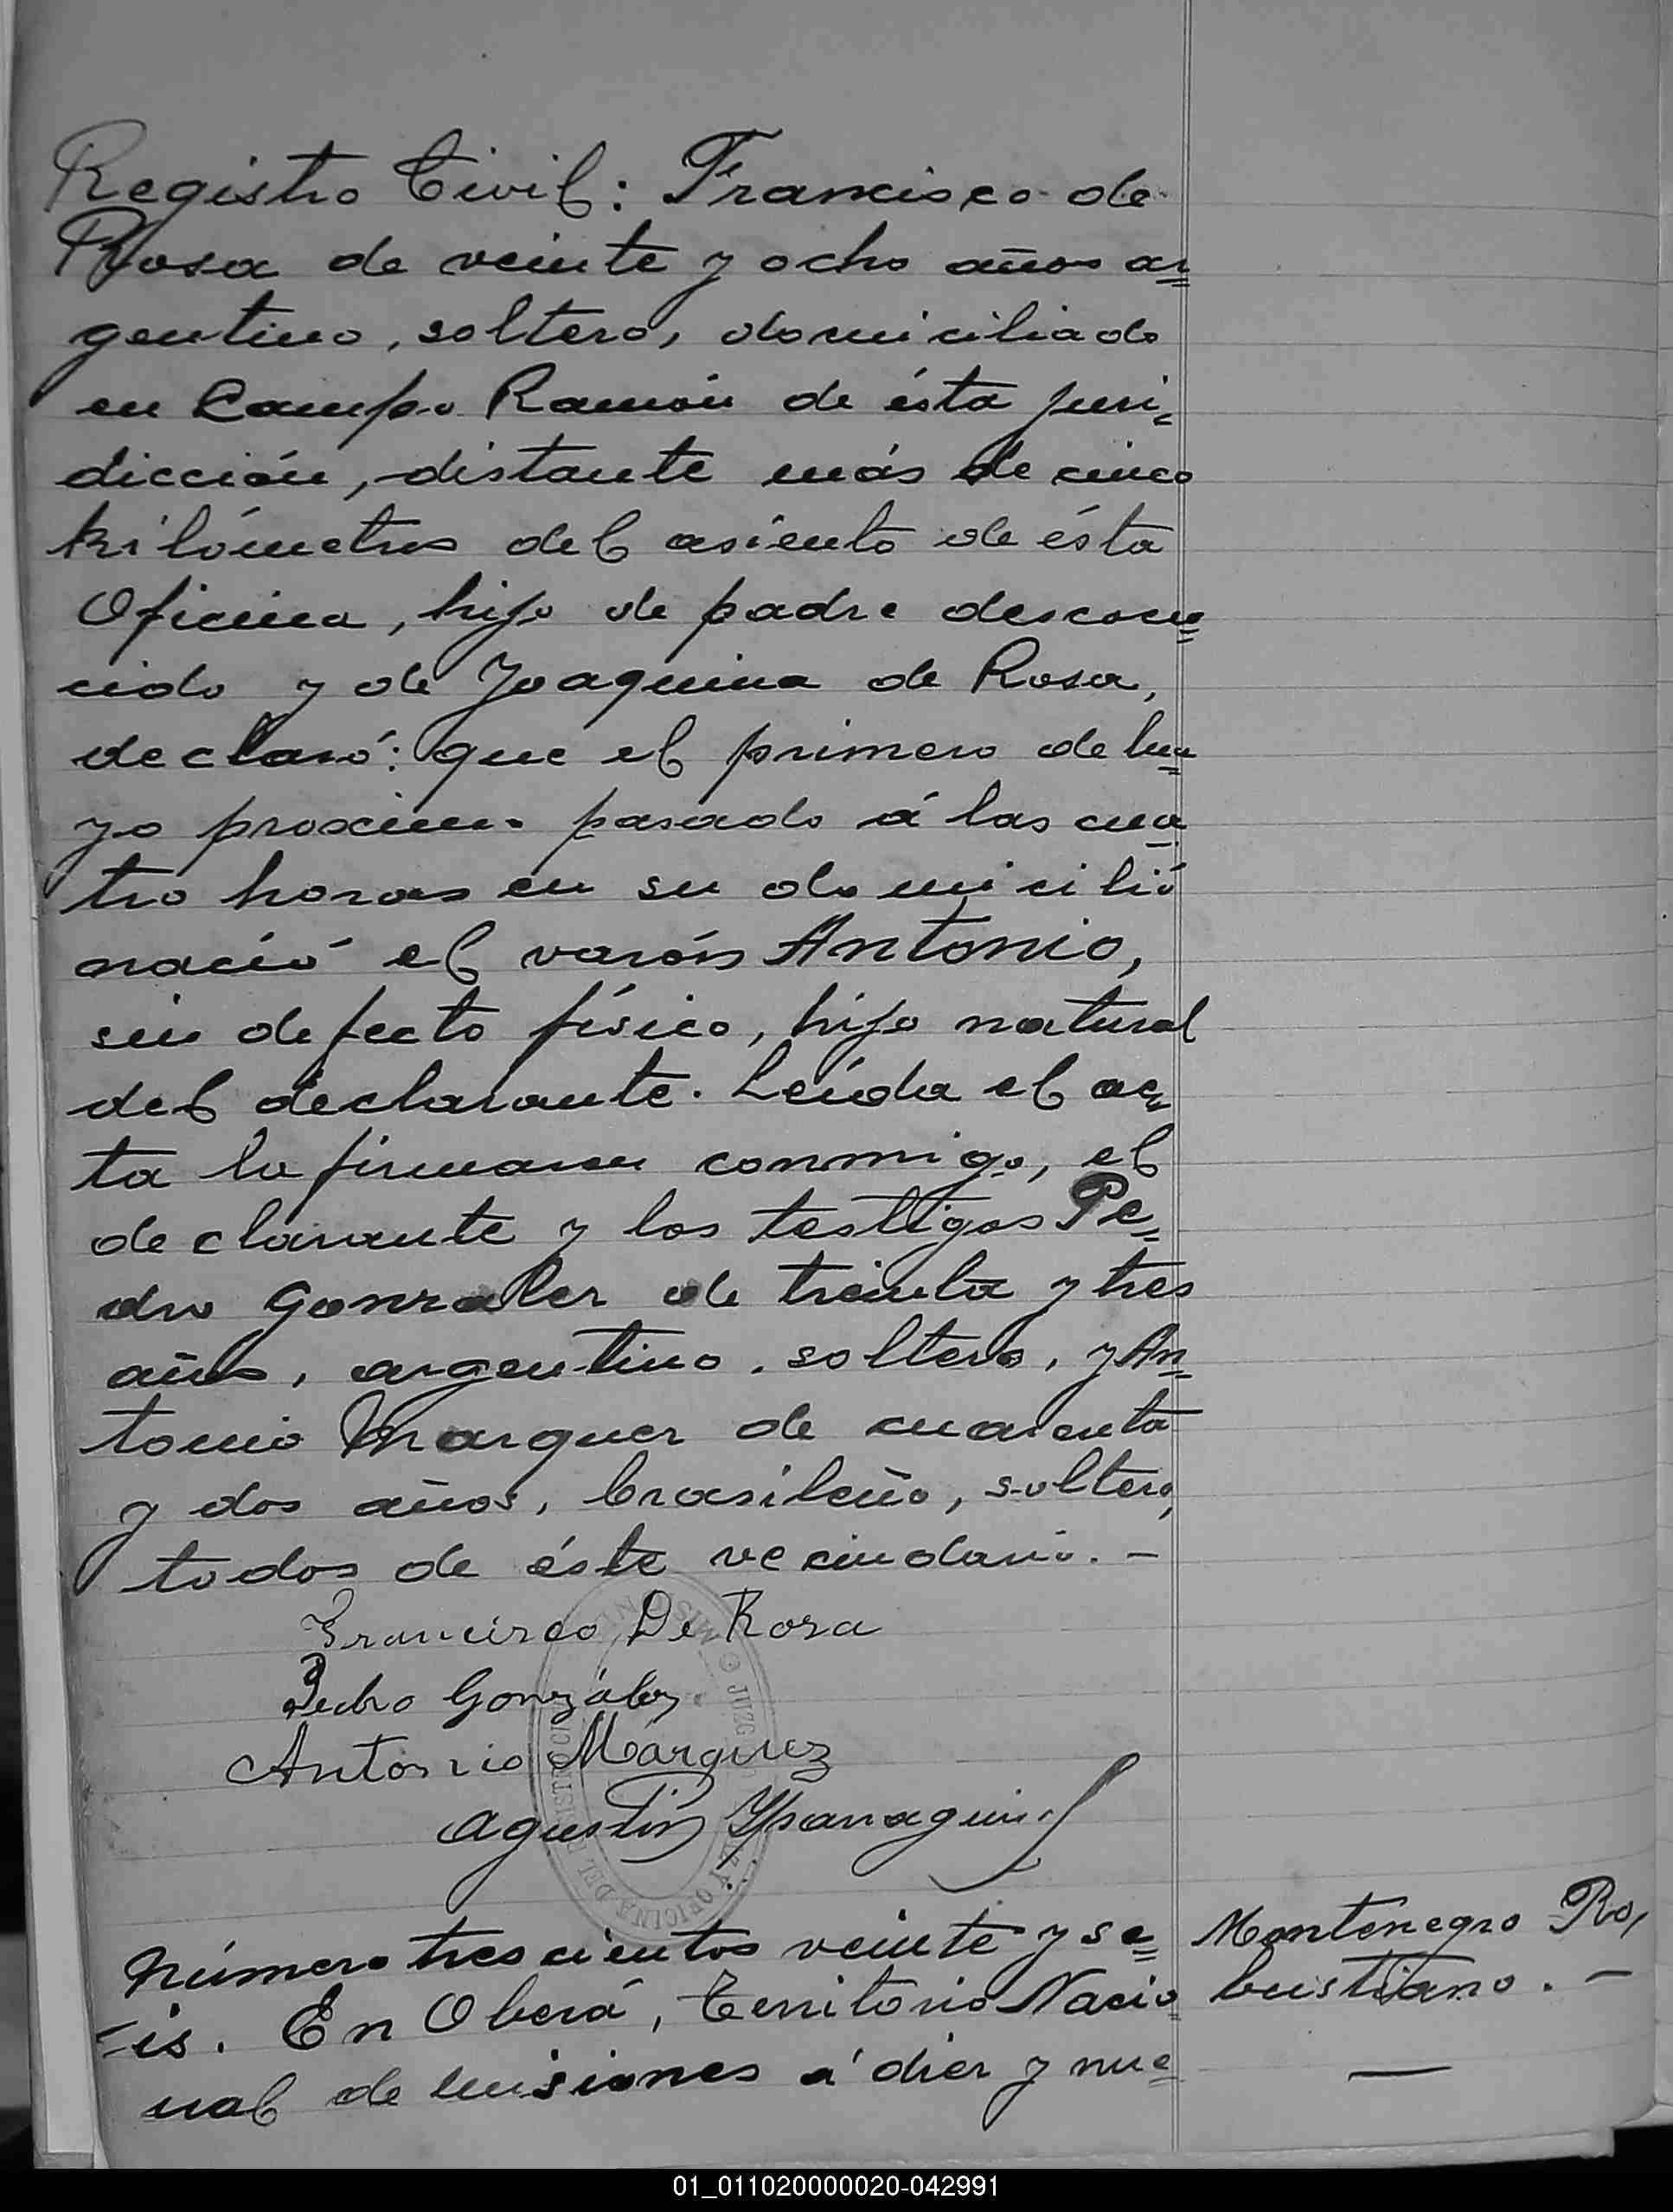 Registro Civil: Francisco de
Rosa de veinte y ocho años ar=
gentino, soltero, domiciliado
en Campo Ramón de ésta juri=
dicción, distante más de cinco
kilómetros del asiento de ésta
Oficina, hijo de padre descono=
cido y de Joaquina de Rosa,
declaró: que el primero de Ma=
yo proximo pasado á las cua=
tro horas en su domicilió
nació el varón Antonio,
sin defecto físico, hijo natural
del declarante. Leída el ac=
ta la firmaron conmigo, el
declarante y los testigos Pe=
dro Gonzalez de treinta y tres
años, argentino, soltero, y An=
tonio Marquez de cuarenta
y dos años, brasileño, soltero,
todos de éste vecindario. -
Francisco De Rosa
Pedro González
Antonio Márquez
Agustín Yparaguirre
JUZG OFICINA DEL REGISTRO CI
Número trescientos veinte y se=
=is. En Oberá, Territorio Nacio=
nal de Misiones á diez y nue=
Montenegro Ro,
bustiano. -
01_011020000020-042991